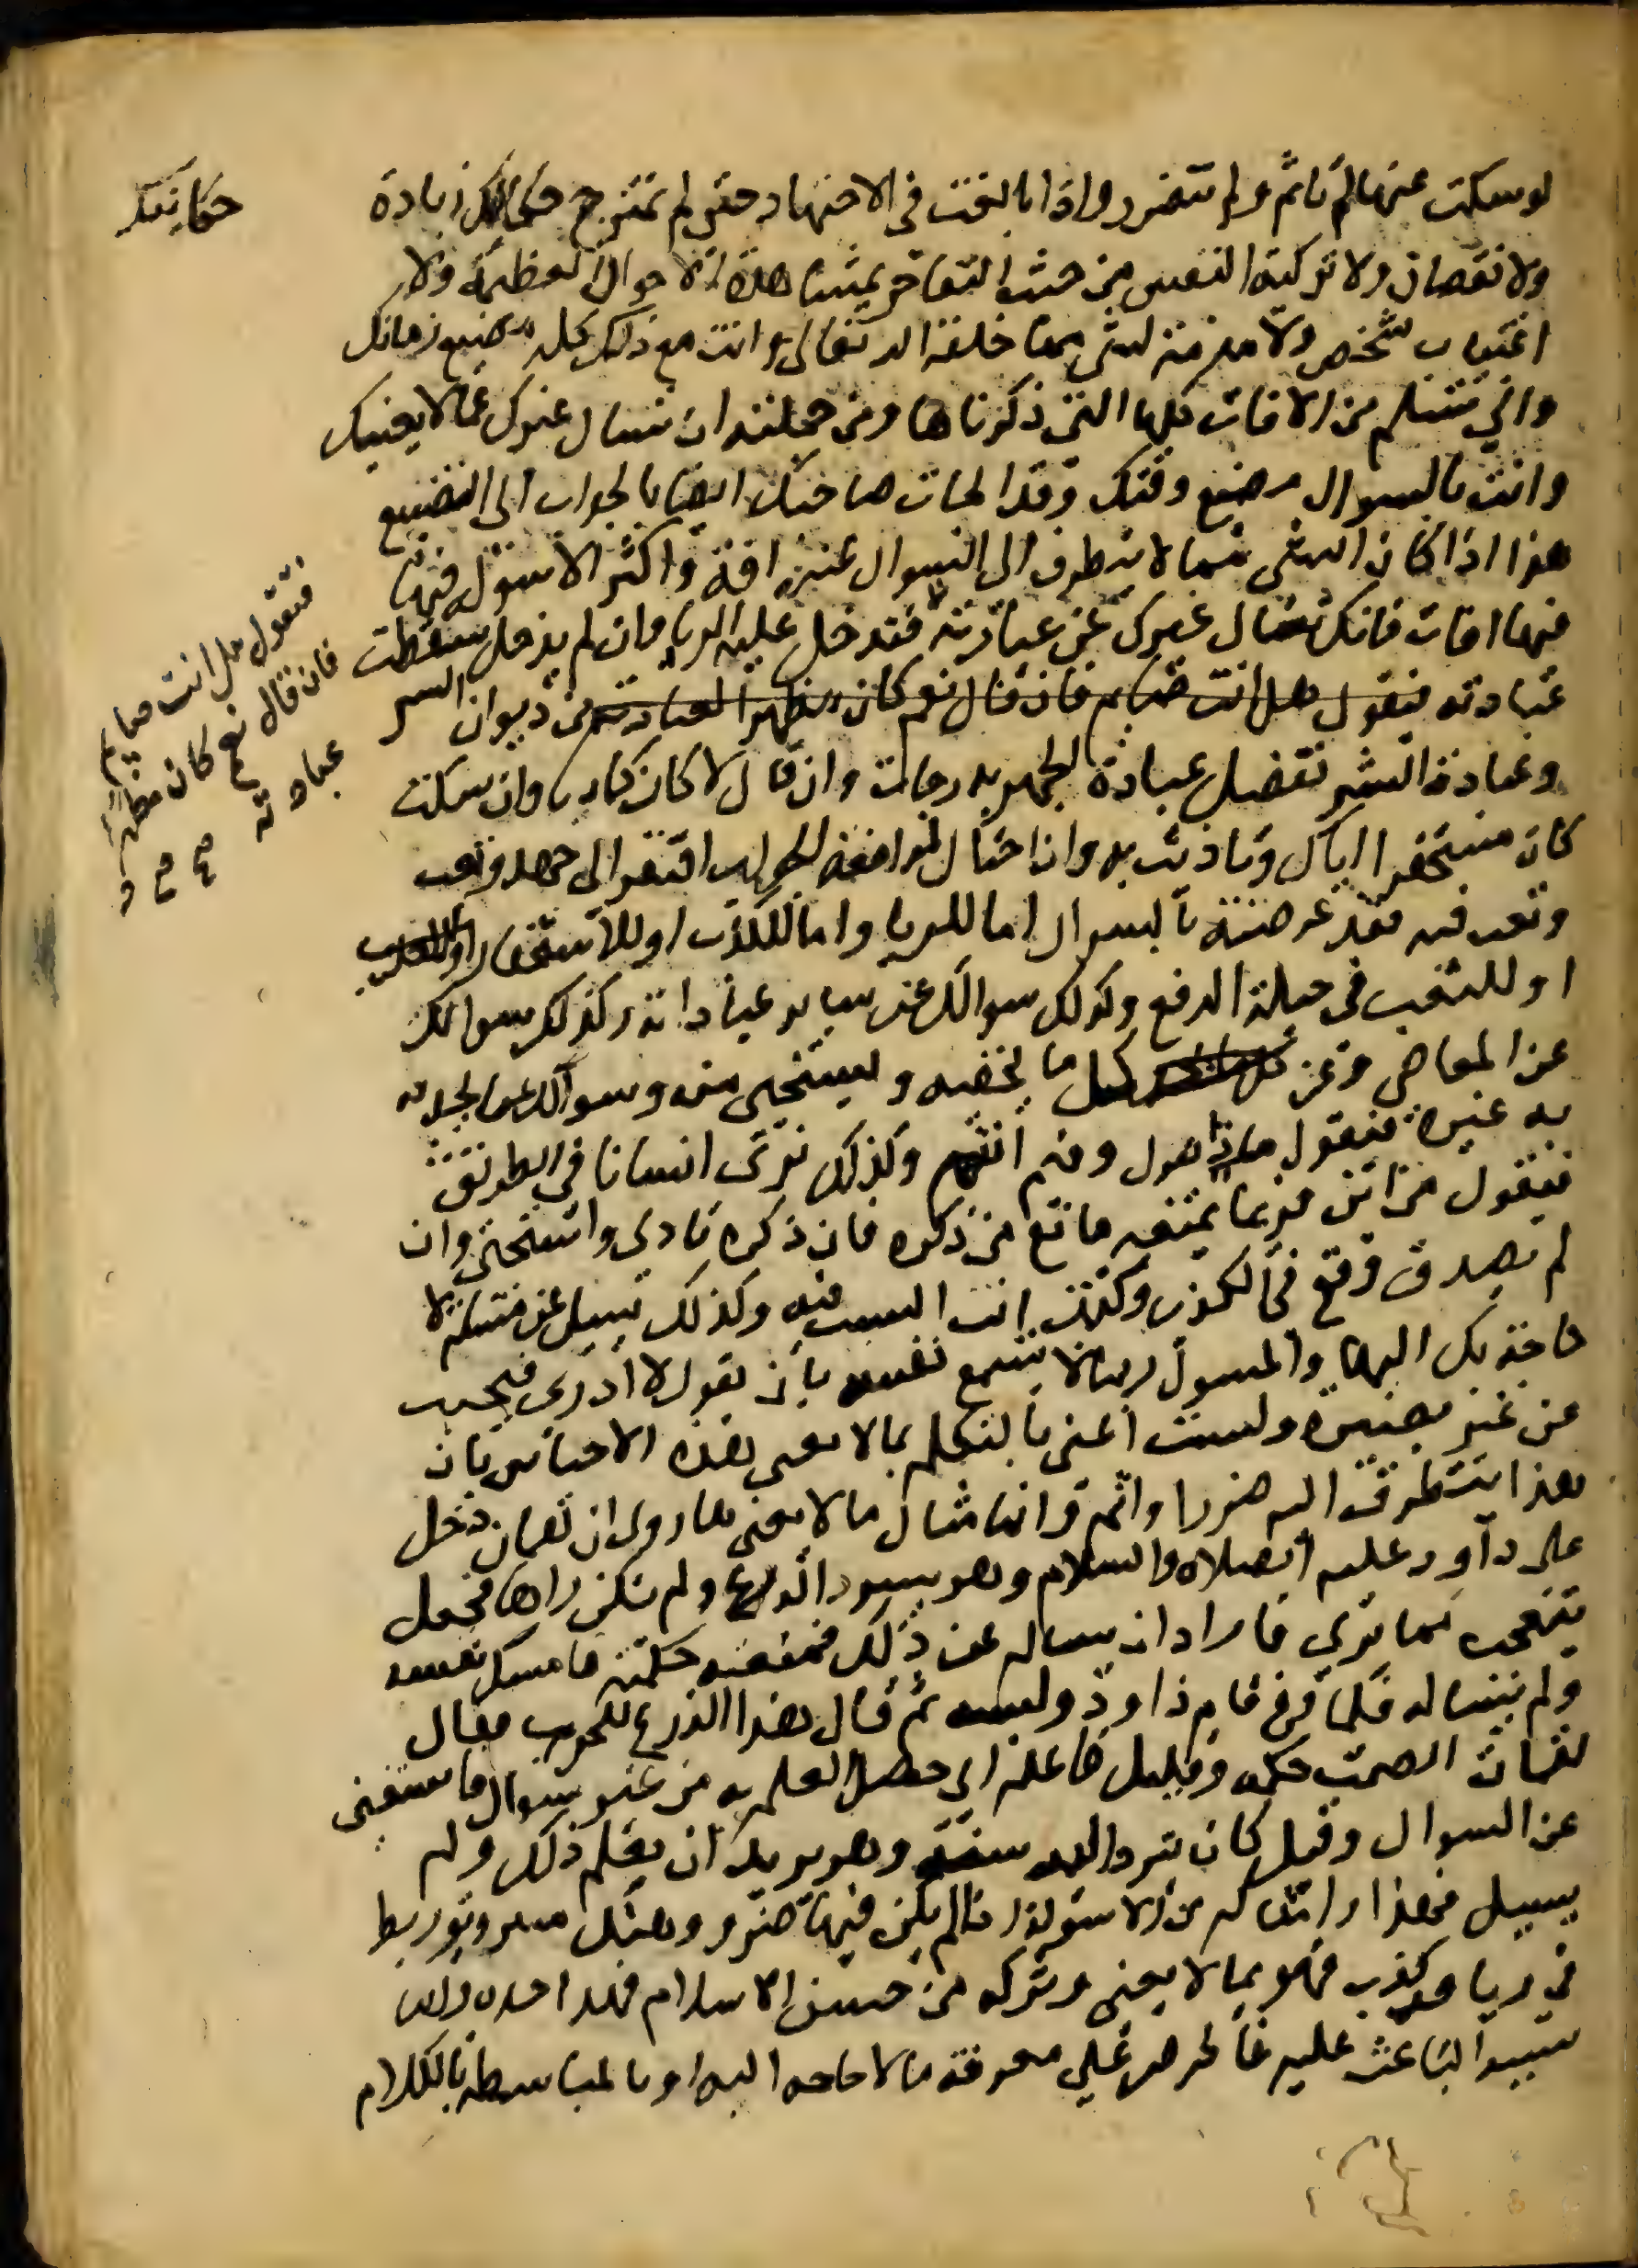 لو سكت عنها لم تاثم ولم تتضرر واذا بالغت فى الاجتهاد حتى لم تمتزج حكايتك زيادة
حكايتك
ولا نقصان ولا تزكية النفس من حيث التفاخر بمشاهدة الاحوال العظيمة ولا
اغتياب شخص ولا مذمة لشى مما خلقه الله تعالى وانت مع ذلك كله مضيع زمانك
وانى تسلم من الافات كلها التى ذكرناها ومن جملته ان تسال غيرك عما لا يعنيك
وانت بالسوال مضيع وقتك وقد الجات صاحبك ايضا بالجواب الى التضييع
هذا اذا كان الشى مما لا يتطرق الى السوال عنه افة واكثر الاسئولة فيها
فيها افات فانك تسال غيرك عن عبادته فقد دخل عليه الريا وان لم يدخل سقطت
عبادته فيقول هل انت صايم فان قال نعم كان مظهرا لعبادته من ديوان السر
فتقول هل انت صايم
فان قال نعم كان مظهرا
عبادته
صح
وعبادة السر تفضل عبادة الجهر بدرجات وان قال لا كان كاذبا وان سكت
كان مستحقرا اياك وتاذيت به وان احتال لمدافعة الجواب افتقر الى جهد وتعب
وتعب فيه فقد عرضته بالسوال اما للريا واما للكذب او للاستحقار او للتعب
او للتعب فى حيلة الدفع وكذلك سوالك عن ساير عباداته وكذلك سوالك
عن المعاصى وعن كل ما يخفيه ويستحيى منه وسوالك عما يحدث
به غيره فيقول ماذا تقول وفيم انتم وكذلك ترى انسانا فى الطريق
فيقول من اين فربما يمنعه مانع من ذكره فان ذكره تاذى واستحيى وان
لم يصدق وقع فى الكذب وكنت انت السبب فيه وكذلك تسيل عن مسئلة لا
حاجة بك اليها والمسول ربما لا تسمح نفسه بان يقول لا ادرى فيجيب
عن غير بصيرة ولست اعنى بالتكلم بما لا يعنى هذه الاجناس فان
هذا يتطرق اليه ضررا واثم وانما مثال ما لا يعنى ما روى ان لقمان دخل
على داود عليه الصلاه والسلام وهو يسرد الدرع ولم يكن راها فجعل
يتعجب مما يرى فاراد ان يساله عن ذلك فمنعته حكمته فامسك نفسه
ولم يساله فلما فرغ قام داود ولبسه ثم قال هذا الدرع للحرب فقال
لقمان الصمت حكم وقليل فاعله اى حصل العلم به من غير سوال فاستغنى
عن السوال وقيل كان يتردد اليه سنة وهو يريد ان يعلم ذلك ولم
يسيل فهذا وامثاله من الاسئولة اذا لم يكن فيها ضرر وهتك ستر وتوريط
فى ريا وكذب فهو مما لا يعنى وتركه من حسن الاسلام فهذا حده واما
سببه الباعث عليه فالحرص على معرفة ما لا حاجه اليه او بالمباسطة بالكلام